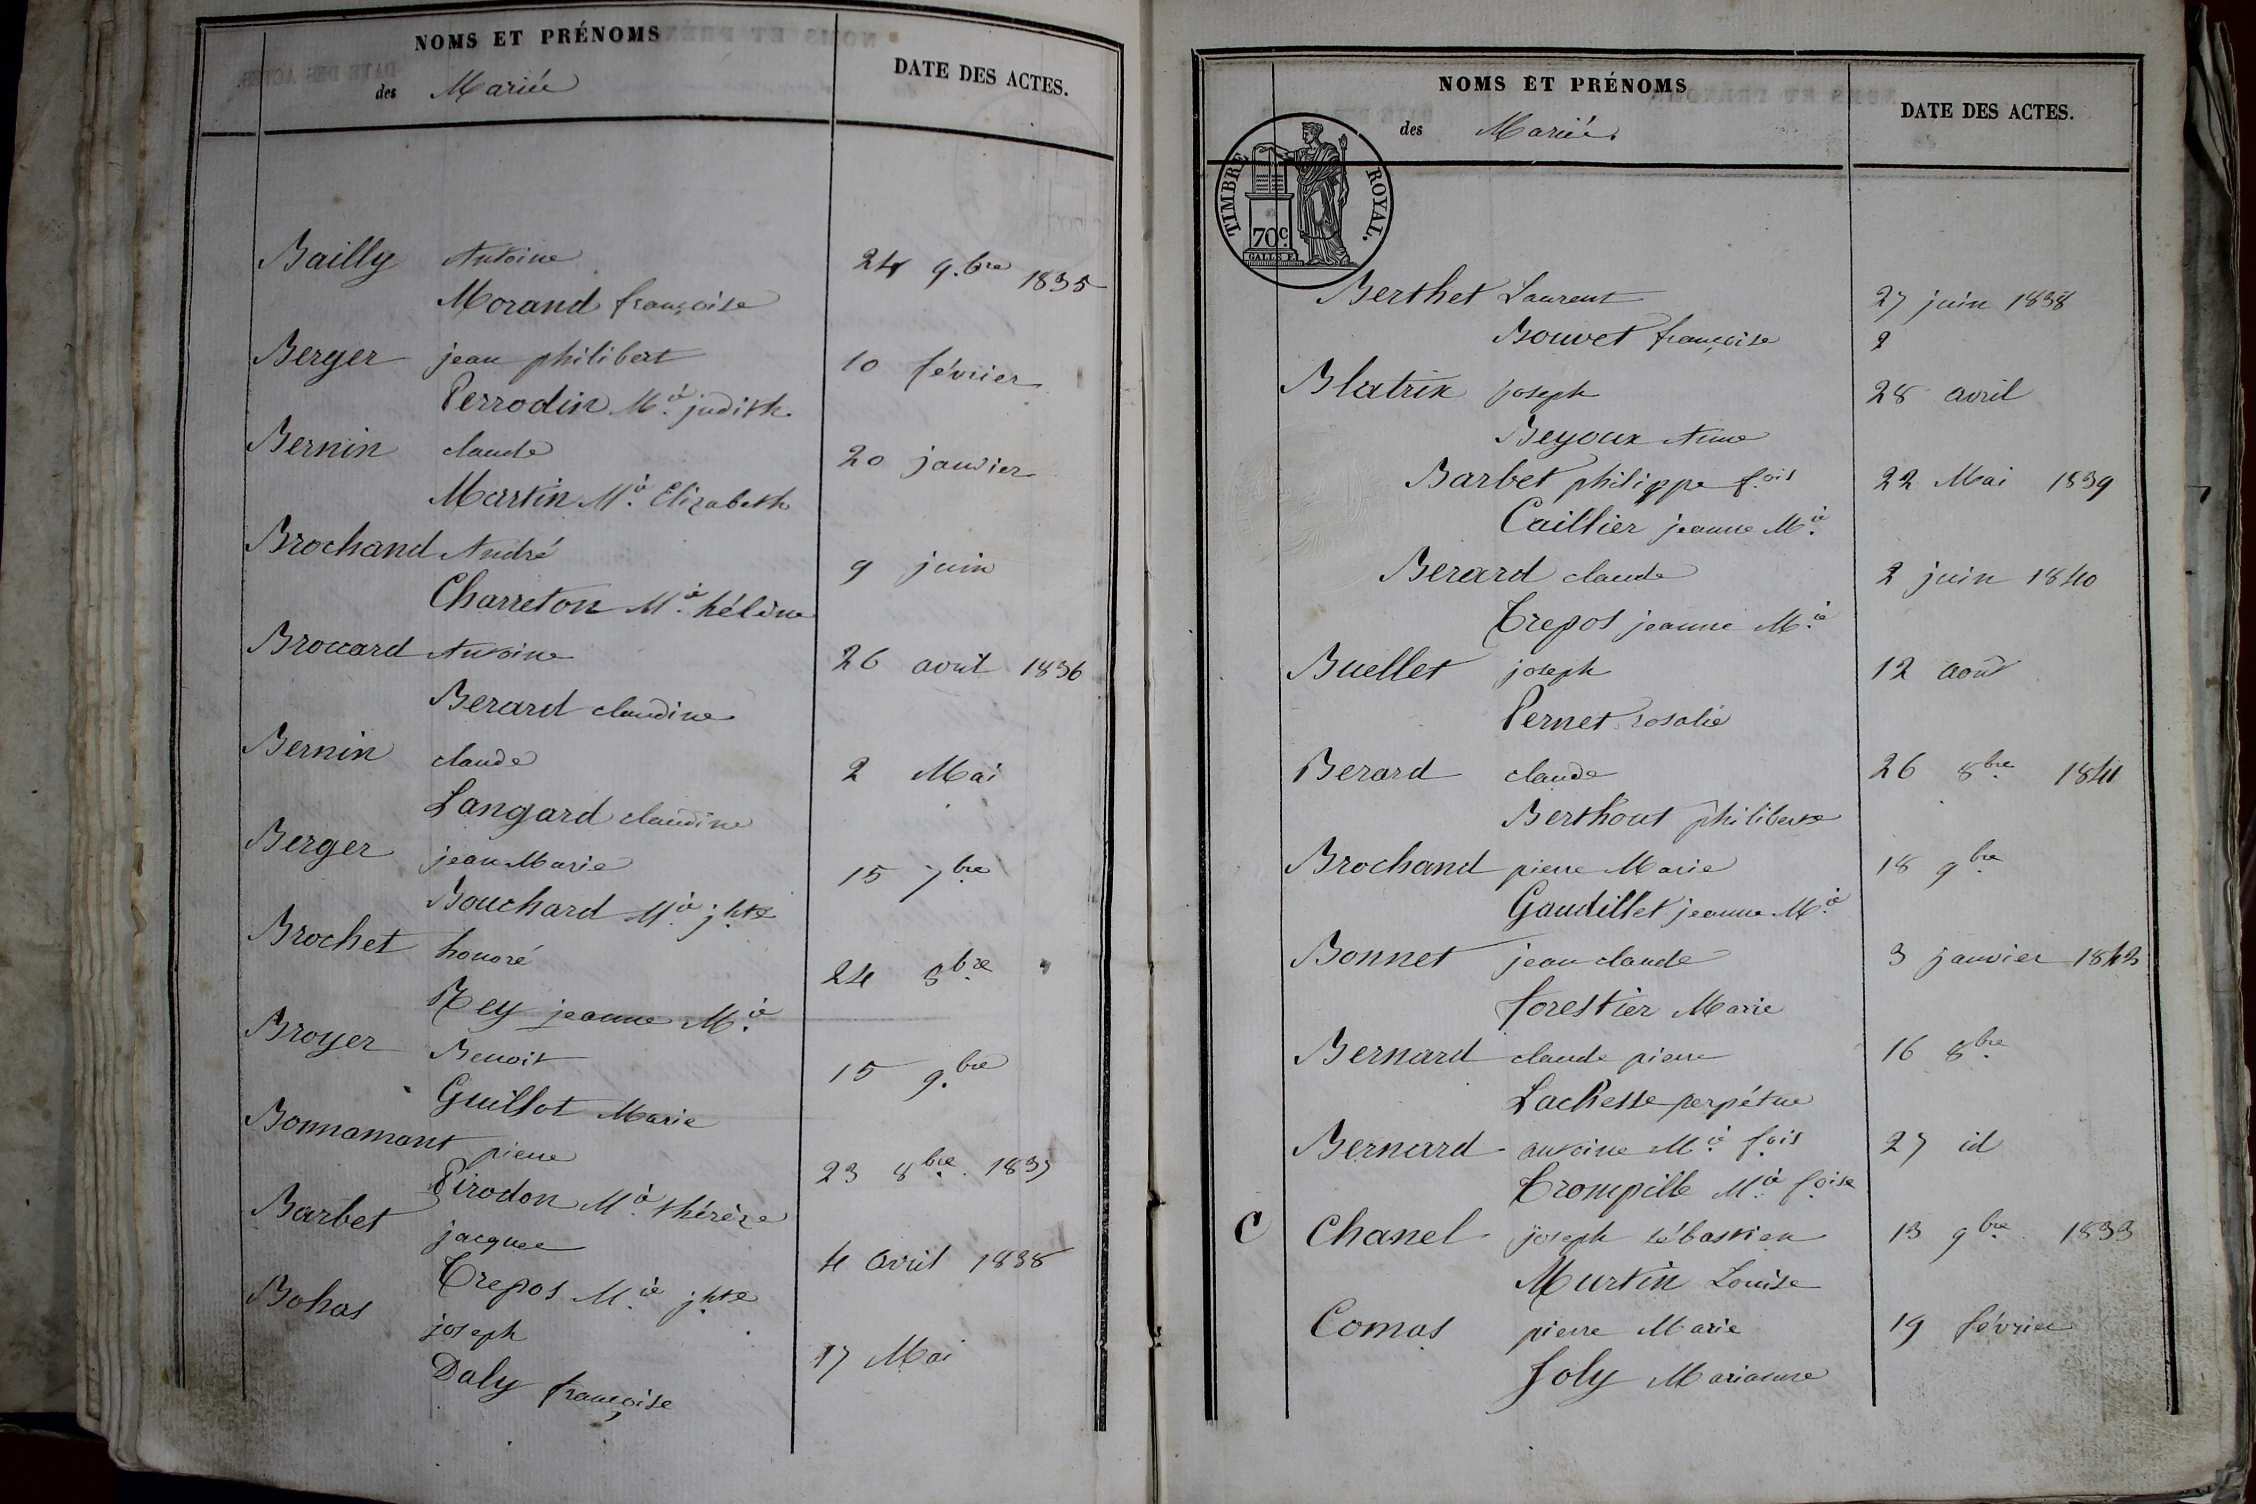 NOMS ET PRÉNOMS
des Mariés
DATE DES ACTES.
Bailly Antoine 24 9.bre 1835
Morand françoise
Berger jean philibert 10 février
Perrodin M.ie judith
Bernin claude 20 janvier
Martin M.ie Elizabeth
Brochand André 9 juin
Charreton M.ie hélène
Broccard Antoine 26 avril 1836
Berard claudine
Bernin claude 2 Mai
Langard claudine
Berger jean Marie 15 7bre
Bouchard M.ie j.hte
Brochet honoré 24 8bre
Rey jeanne M.ie
Broyer Benoit 15 9.bre
Guillot Marie
Bonnamant pierre 23 8bre 1837
Pirodon M.ie thérèze
Barbet jacques 4 avril 1838
Trepos M.ie j.hte
Bohas joseph 17 Mai
Daly françoise
NOMS ET PRÉNOMS
des Mariés
DATE DES ACTES.
TIMBRE ROYAL.
70c.
Berthet Laurent 27 juin 1838
Bouvet françoise 2
Blatrix joseph 28 avril
Beyoux Anne
Barbet philippe f.ois 22 Mai 1839
Caillier jeanne M.ie
Berard claude 2 juin 1840
Trepos jeanne M.ie
Buellet joseph 12 août
Pernet rosalie
Berard claude 26 8bre 1841
Berthout philiberte
Brochand pierre Marie 18 9bre
Gaudillet jeanne M.ie
Bonnet jean claude 3 janvier 1843
forestier Marie
Bernard claude pierre 16 8bre
Lachesse perpétue
Bernard antoine M.ie f.ois 27 id
Trompille M.ie f.oise
C Chanel joseph sébastien 13 9bre 1833
Martin Louise
Comas pierre Marie 19 février
Joly Marianne